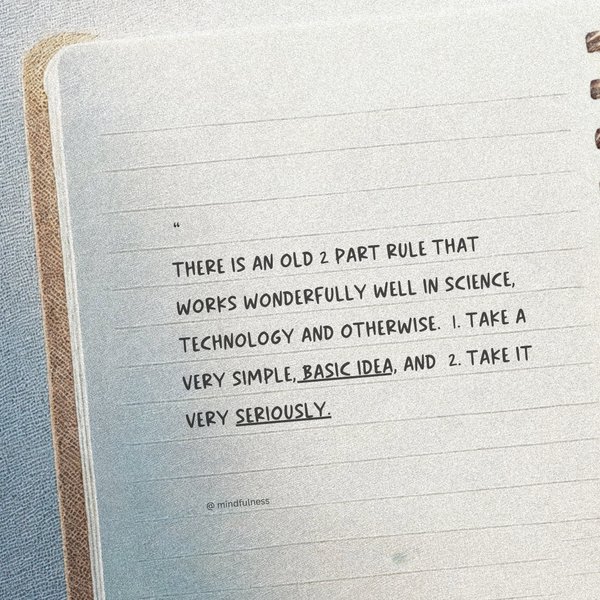 “
THERE IS AN OLD 2 PART RULE THAT
WORKS WONDERFULLY WELL IN SCIENCE,
TECHNOLOGY AND OTHERWISE. 1. TAKE A
VERY SIMPLE, BASIC IDEA, AND 2. TAKE IT
VERY SERIOUSLY.
@ mindfulness